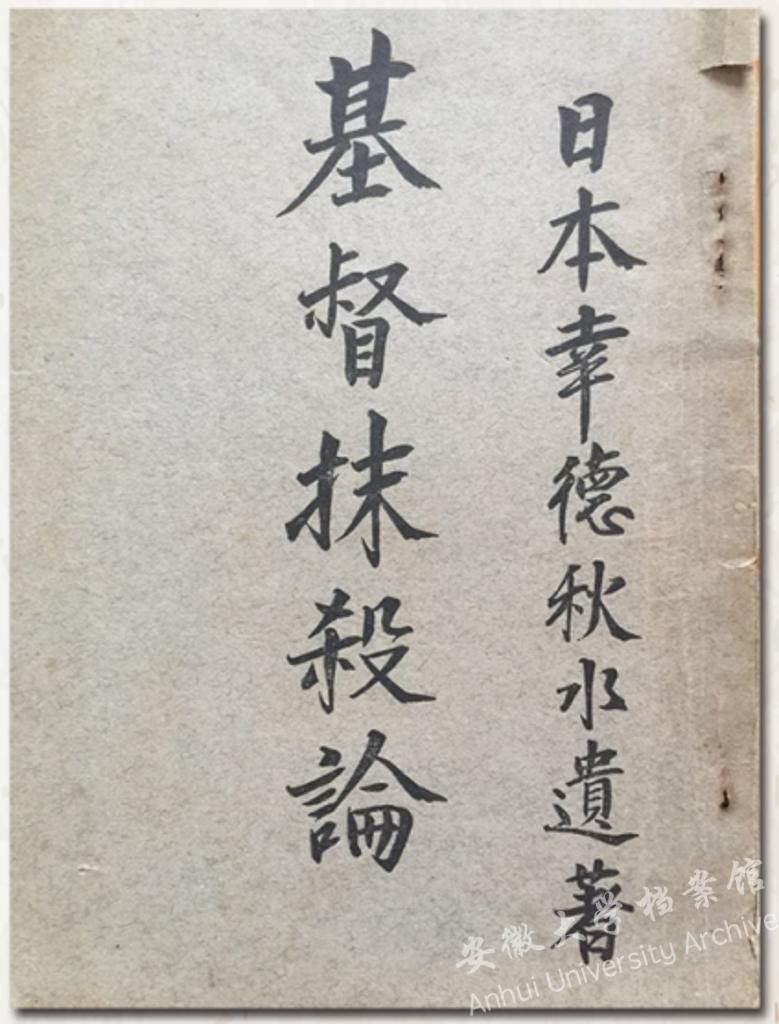 日本幸德秋水遺著
基督抹殺論
安徽大学档案馆
Anhui University Archive